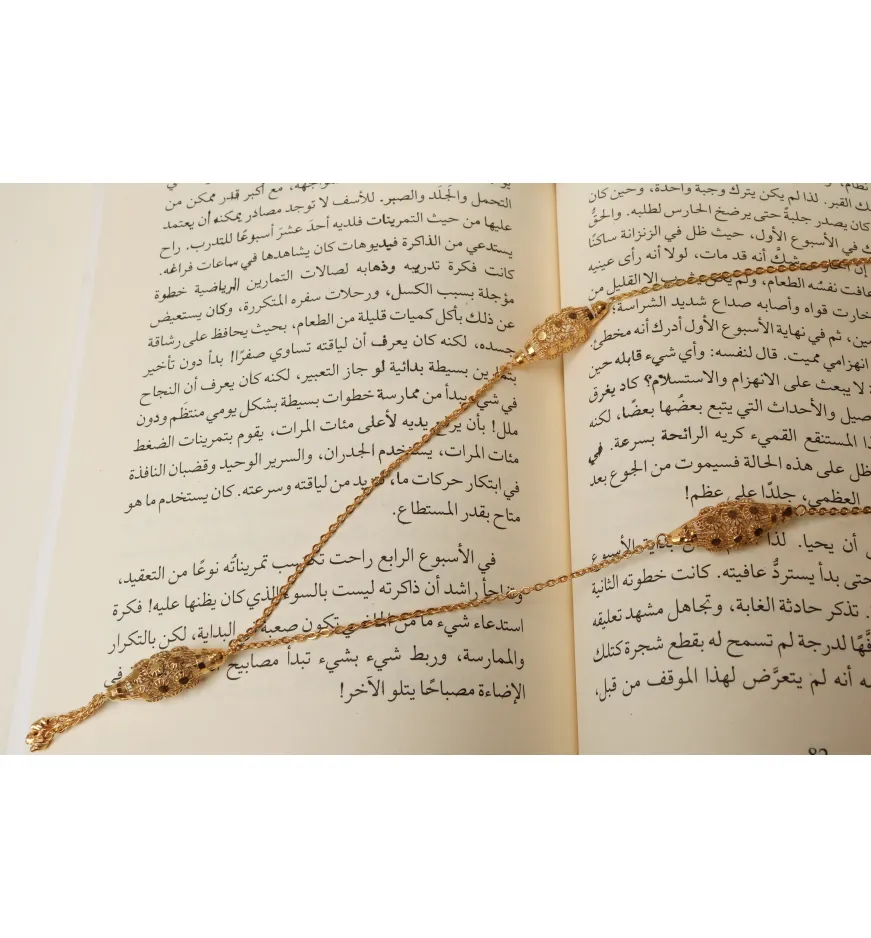 نظام،
ـك القبر. لذا لم يكن يترك وجبة واحدة، وحين كان
كان يصدر جلبةً حتى يرضخ الحارس لطلبه. والحقُّ
ك في الأسبوع الأول، حيث ظل في الزنزانة ساكنًا
شكَّ أنه قد مات، لولا أنه رأى عينيه
عافت نفسُه الطعام، ولم يكن يشرب إلا القليل من
خارت قواه وأصابه صداع شديد الشراسة؛
ـين، ثم في نهاية الأسبوع الأول أدرك أنه مخطئ.
انهزامي مميت. قال لنفسه: وأي شيء قابله حين
لا يبعث على الانهزام والاستسلام؟ كاد يغرق
ـصيل والأحداث التي يتبع بعضُها بعضًا، لكنه
ـذا المستنقع القميء كريه الرائحة بسرعة. في
ظل على هذه الحالة فسيموت من الجوع بعد
العظمي، جلدًا على عظم!
أن يحيا. لذا بداية الأسبوع
حتى بدأ يستردُّ عافيته. كانت خطوته الثانية
. تذكر حادثة الغابة، وتجاهل مشهد تعليقه
ـفَّهًا لدرجة لم تسمح له بقطع شجرة كتلك
ـه أنه لم يتعرَّض لهذا الموقف من قبل،
82
ـواجهه، مع أكبر قدر ممكن من
التحمل والجَلَد والصبر. للأسف لا توجد مصادر يمكنه أن يعتمد
عليها من حيث التمرينات فلديه أحدَ عشرَ أسبوعًا للتدرب. راح
يستدعي من الذاكرة فيديوهات كان يشاهدها في ساعات فراغه.
كانت فكرة تدريبه وذهابه لصالات التمارين الرياضية خطوة
مؤجلة بسبب الكسل، ورحلات سفره المتكررة، وكان يستعيض
عن ذلك بأكل كميات قليلة من الطعام، بحيث يحافظ على رشاقة
جسده، لكنه كان يعرف أن لياقته تساوي صفرًا! بدأ دون تأخير
بتمارين بسيطة بدائية لو جاز التعبير، لكنه كان يعرف أن النجاح
في شيء يبدأ من ممارسة خطوات بسيطة بشكل يومي منتظَم ودون
ملل! بأن يرفع يديه لأعلى مئات المرات، يقوم بتمرينات الضغط
مئات المرات، يستخدم الجدران، والسرير الوحيد وقضبان النافذة
في ابتكار حركات ما، تزيد من لياقته وسرعته. كان يستخدم ما هو
متاح بقدر المستطاع.
في الأسبوع الرابع راحت تكتسب تمريناتُه نوعًا من التعقيد،
وتفاجأ راشد أن ذاكرته ليست بالسوء الذي كان يظنها عليه! فكرة
استدعاء شيء ما من الماضي تكون صعبة في البداية، لكن بالتكرار
والممارسة، وربط شيء بشيء تبدأ مصابيح في
الإضاءة مصباحًا يتلو الآخر!